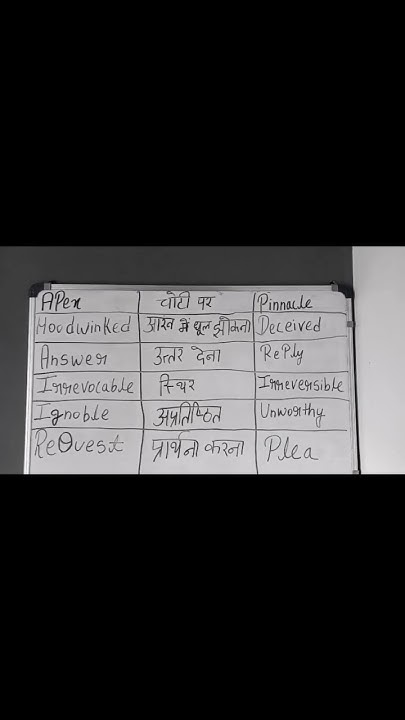 APex चोटी पर Pinnacle
Hoodwinked आख में धूल झोंकना Deceived
Answer उत्तर देना RePly
Irrevocable स्थिर Irreversible
Ignoble अप्रतिष्ठित Unworthy
ReQuest प्रार्थना करना Plea